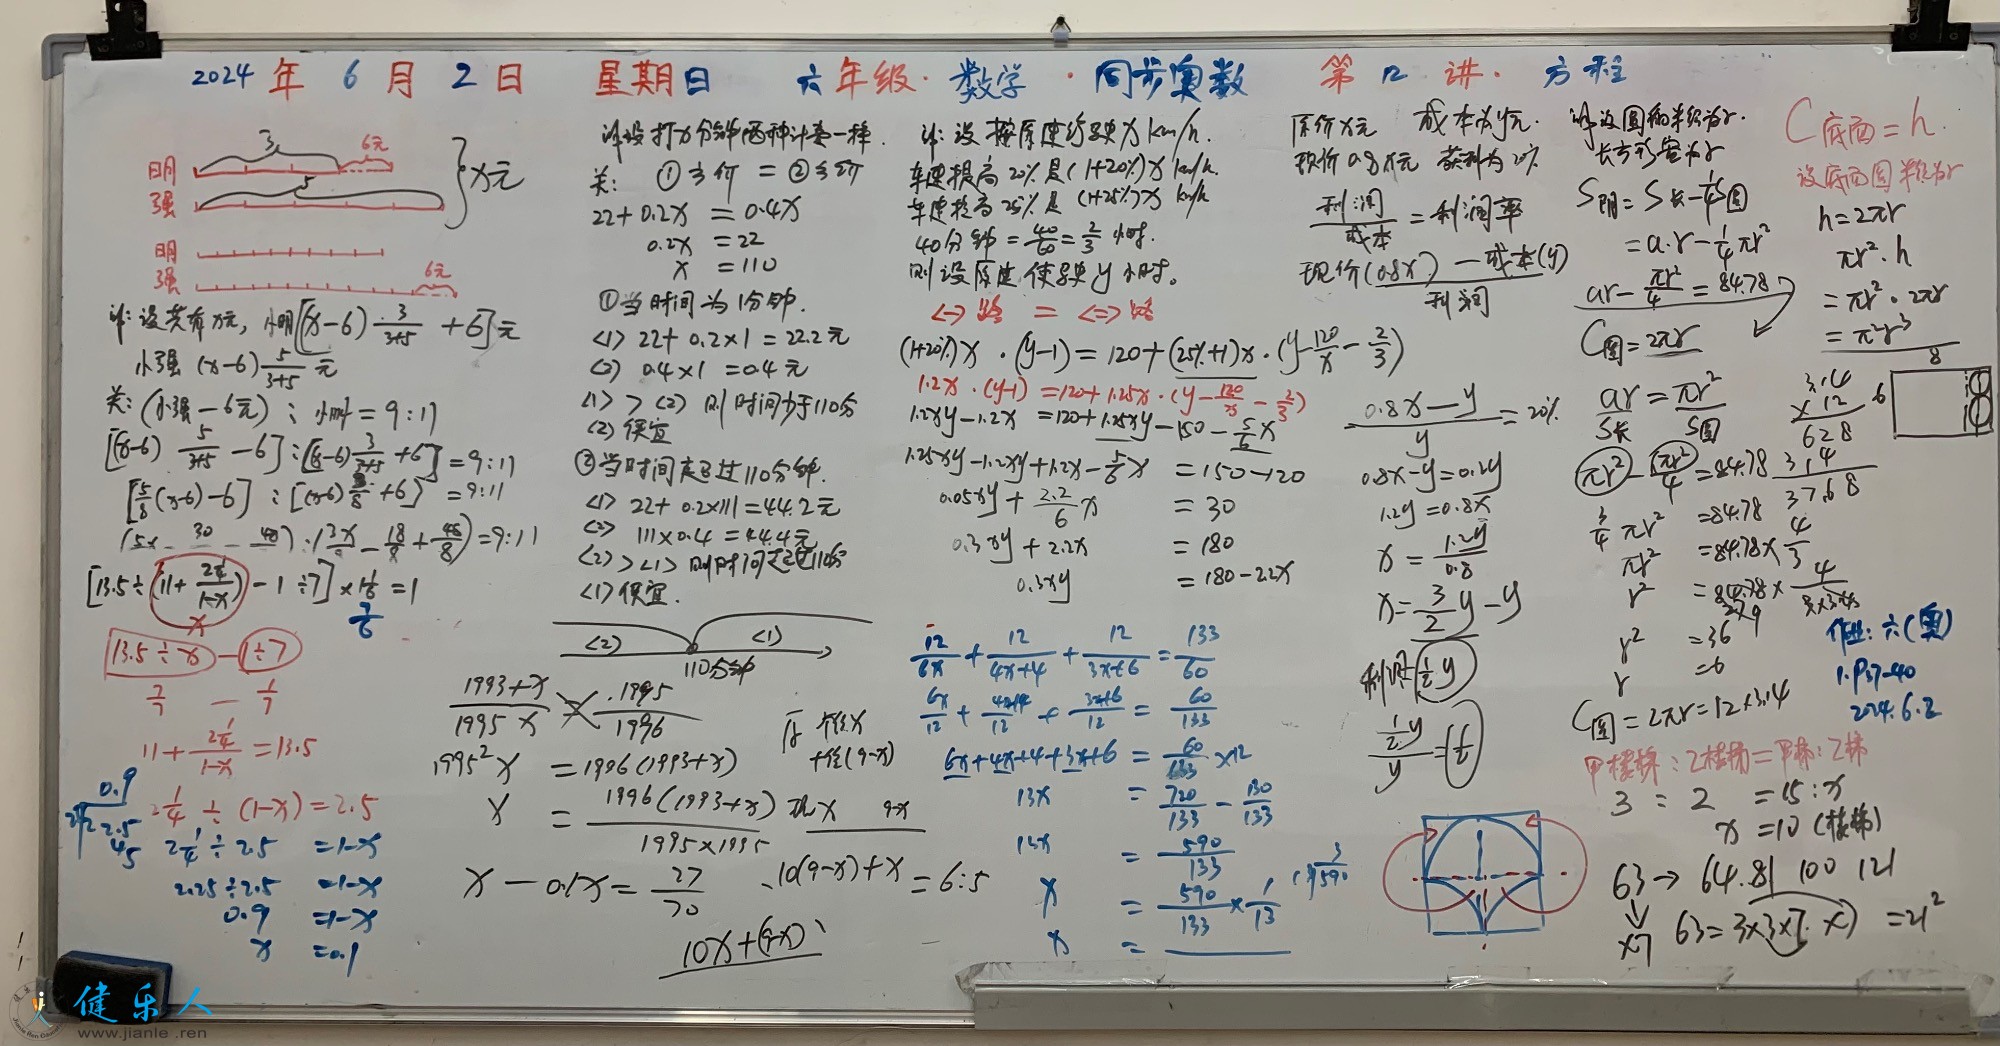 2024年6月2日 星期日 六年级·数学·同步奥数 第12讲·方程
3
6元
明
5
强
}x元
明
强
6元
解:设共有x元, 小明[(x-6)·3/(3+5)+6]元
小强 (x-6) 5/(3+5) 元
关:(小强-6元):小明=9:11
[(x-6) 5/(3+5) -6]:[(x-6) 3/(3+5) +6]=9:11
[5/8(x-6)-6]:[(x-6)3/8+6]=9:11
[13.5÷(11+2¼/(1-x))-1÷7]×1⅙=1
x
7/6
13.5÷x - 1÷7
11+2¼/(1-x)=13.5
2¼÷(1-x)=2.5
2¼÷2.5=1-x
2.25÷2.5=1-x
0.9=1-x
x=0.1
解设打x分钟两种计费一样.
关: ①总价=②总价
22+0.2x=0.4x
0.2x=22
x=110
①当时间为1分钟.
<1> 22+0.2×1=22.2元
<2> 0.4×1=0.4元
<1> > <2> 则时间少于110分
<2>便宜
②当时间超过110分钟.
<1> 22+0.2×111=44.2元
<2> 111×0.4=44.4元
<2> > <1> 则时间超过110分
<1>便宜.
<2> <1>
110分钟
(1993+x)/(1995x) 1995/1996
1995²x=1996(1993+x)
x=1996(1993+x)/(1995×1995)
x-0.1x=27/70
原 个位x
十位(9-x)
现x 9-x
10(9-x)+x =6:5
10x+(9-x)
解:设按原速行驶x km/h.
车速提高20%是(1+20%)x km/h.
车速提高25%是(1+25%)x km/h
40分钟=40/60=2/3小时.
则设原速使驶y小时。
<1>路 = <2>路
(1+20%)x·(y-1)=120+(25%+1)x·(y-120/x-2/3)
1.2x·(y-1)=120+1.25x·(y-120/x-2/3)
1.2xy-1.2x=120+1.25xy-150-5/6x
1.25xy-1.2xy+1.2x-5/6x=150-120
0.05xy+2.2/6x=30
0.3xy+2.2x=180
0.3xy=180-2.2x
12/6x+12/(4x+4)+12/(3x+6)=133/60
6x/12+(4x+4)/12+(3x+6)/12=60/133
6x+4x+4+3x+6=60/133×12
13x=720/133-130/133
13x=590/133
x=590/133×1/13
x=
原价x元 成本为y元.
现价0.8x元 获利为20%
利润/成本=利润率
现价(0.8x)-成本(y)
利润
(0.8x-y)/y=20%
0.8x-y=0.2y
1.2y=0.8x
x=1.2y/0.8
x=3/2y-y
利润=½y
½y/y=½
解设圆的半径为r.
长方形宽为r
S阴=S长-¼S圆
=a·r-¼πr²
ar-πr²/4=84.78
C圆=2πr
ar=πr²
S长 S圆
πr²-πr²/4=84.78
3/4πr²=84.78
πr²=84.78×4/3
r²=36
r=6
C圆=2πr=12×3.14
3.14
×12
628
314
37.68
C底面=h.
设底面圆半径为r
h=2πr
πr²·h
=πr²·2πr
=π²r³
8
6
作业:六(奥)
1.P37-40
2024.6.2
甲楼梯:乙楼梯=甲梯:乙梯
3:2=15:x
x=10(楼梯)
63→64.81 100 121
×7 63=3×3×7×7=21²
健乐人
www.jianle.ren